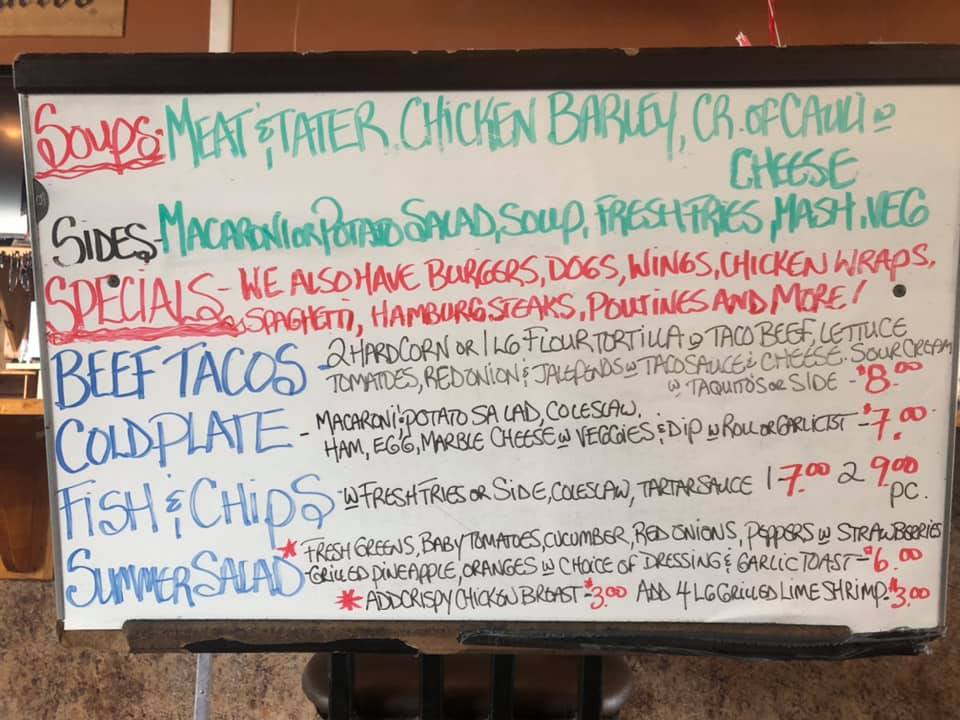 SOUPS- MEAT & TATER, CHICKEN BARLEY, CR. OF CAULI w
CHEESE
SIDES- MACARONI OR POTATO SALAD, SOUP, FRESH FRIES, MASH, VEG
SPECIALS- WE ALSO HAVE BURGERS, DOGS, WINGS, CHICKEN WRAPS,
SPAGHETTI, HAMBURG STEAKS, POUTINES AND MORE!
BEEF TACOS - 2 HARD CORN OR 1 LG FLOUR TORTILLA w TACO BEEF, LETTUCE
TOMATOES, RED ONION & JALEPENOS w TACO SAUCE & CHEESE. SOUR CREAM
w TAQUITOS OR SIDE - $8.00
COLD PLATE - MACARONI & POTATO SALAD, COLESLAW,
HAM, EGG, MARBLE CHEESE w VEGGIES & DIP w ROLL OR GARLIC TST - $7.00
FISH & CHIPS - w FRESH FRIES OR SIDE, COLESLAW, TARTAR SAUCE 1 7.00 2 9.00
PC.
SUMMER SALAD - * FRESH GREENS, BABY TOMATOES, CUCUMBER, RED ONIONS, PEPPERS w STRAWBERRIES
GRILLED PINEAPPLE, ORANGES w CHOICE OF DRESSING & GARLIC TOAST - $6.00
* ADD CRISPY CHICKEN BREAST - $3.00 ADD 4 LG GRILLED LIME SHRIMP - $3.00